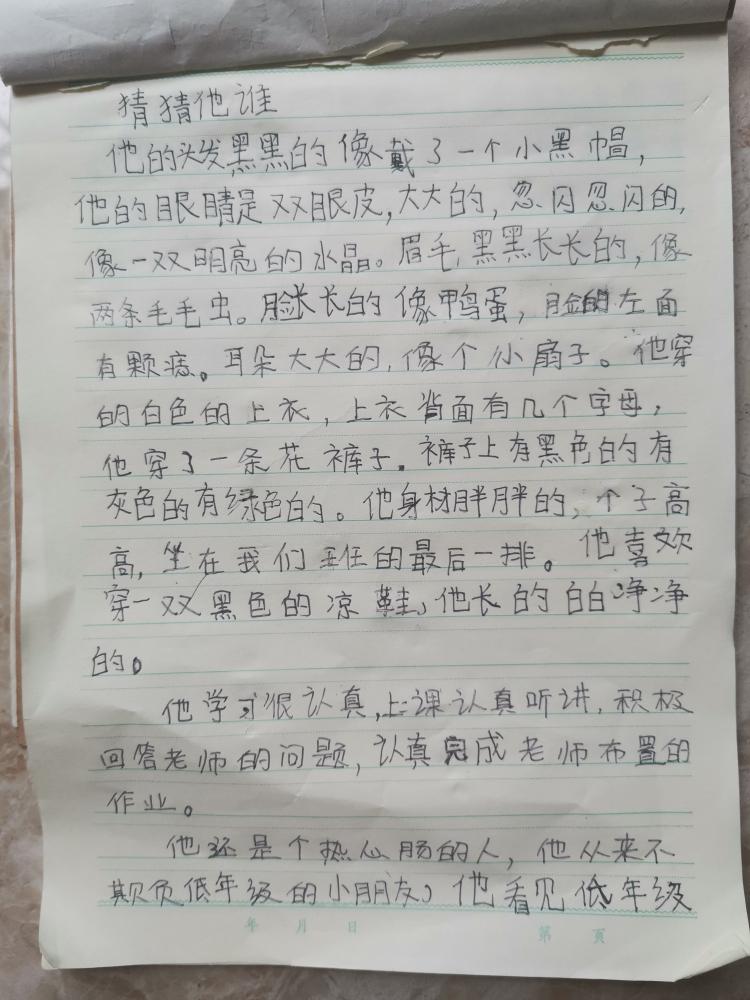 猜猜他谁
他的头发黑黑的像戴了一个小黑帽,
他的眼睛是双眼皮,大大的,忽闪忽闪的,
像一双明亮的水晶。眉毛,黑黑长长的,像
两条毛毛虫。脸长长的像鸭蛋,脸的左面
有颗痣。耳朵大大的,像个小扇子。他穿
的白色的上衣,上衣背面有几个字母,
他穿了一条花裤子.裤子上有黑色的有
灰色的有绿色的。他身材胖胖的,个子高
高,坐在我们班的最后一排。他喜欢
穿一双黑色的凉鞋,他长的白白净净
的。
他学习很认真,上课认真听讲,积极
回答老师的问题,认真完成老师布置的
作业。
他还是个热心肠的人,他从来不
欺负低年级的小朋友,他看见低年级
年 月 日 第 页